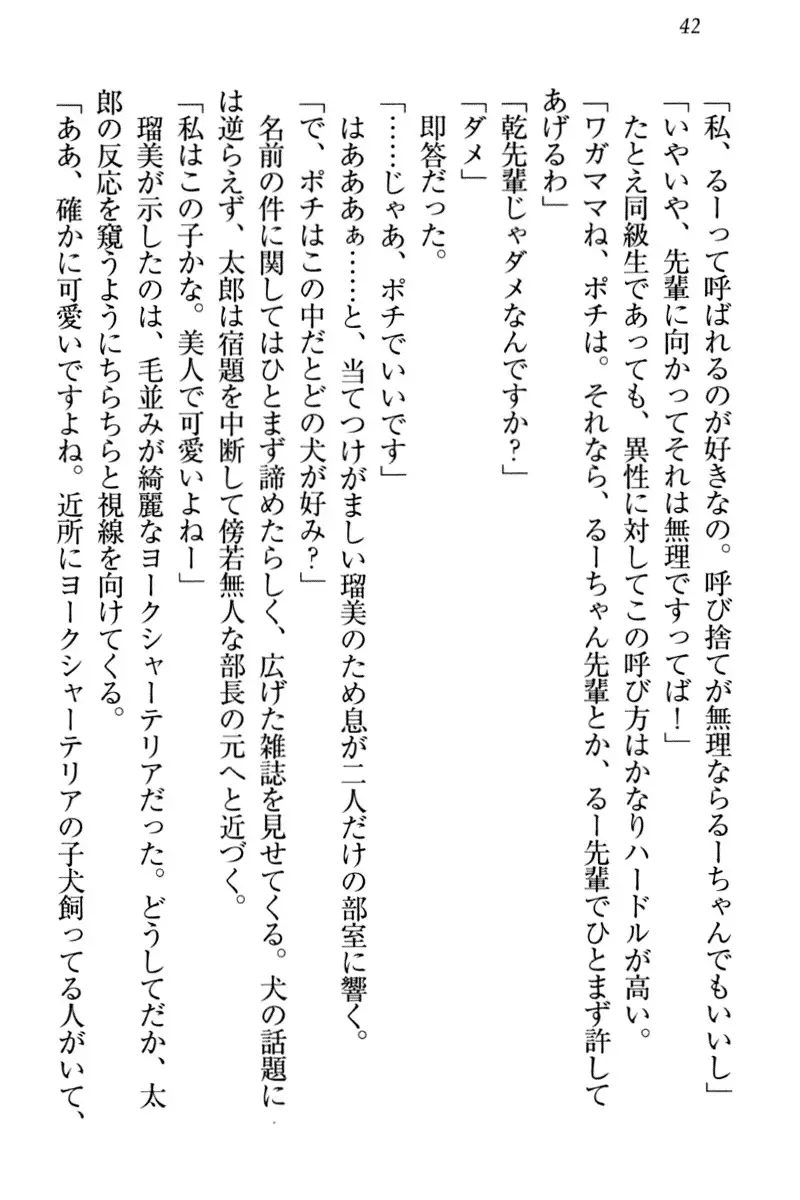 42
「私、るーって呼ばれるのが好きなの。呼び捨てが無理ならるーちゃんでもいいし」
「いやいや、先輩に向かってそれは無理ですってば！」
たとえ同級生であっても、異性に対してこの呼び方はかなりハードルが高い。
「ワガママね、ポチは。それなら、るーちゃん先輩とか、るー先輩でひとまず許して
あげるわ」
「乾先輩じゃダメなんですか？」
「ダメ」
即答だった。
「……じゃあ、ポチでいいです」
はあああぁ……と、当てつけがましい瑠美のため息が二人だけの部室に響く。
「で、ポチはこの中だとどの犬が好み？」
名前の件に関してはひとまず諦めたらしく、広げた雑誌を見せてくる。犬の話題に
は逆らえず、太郎は宿題を中断して傍若無人な部長の元へと近づく。
「私はこの子かな。美人で可愛いよねー」
瑠美が示したのは、毛並みが綺麗なヨークシャーテリアだった。どうしてだか、太
郎の反応を窺うようにちらちらと視線を向けてくる。
「ああ、確かに可愛いですよね。近所にヨークシャーテリアの子犬飼ってる人がいて、